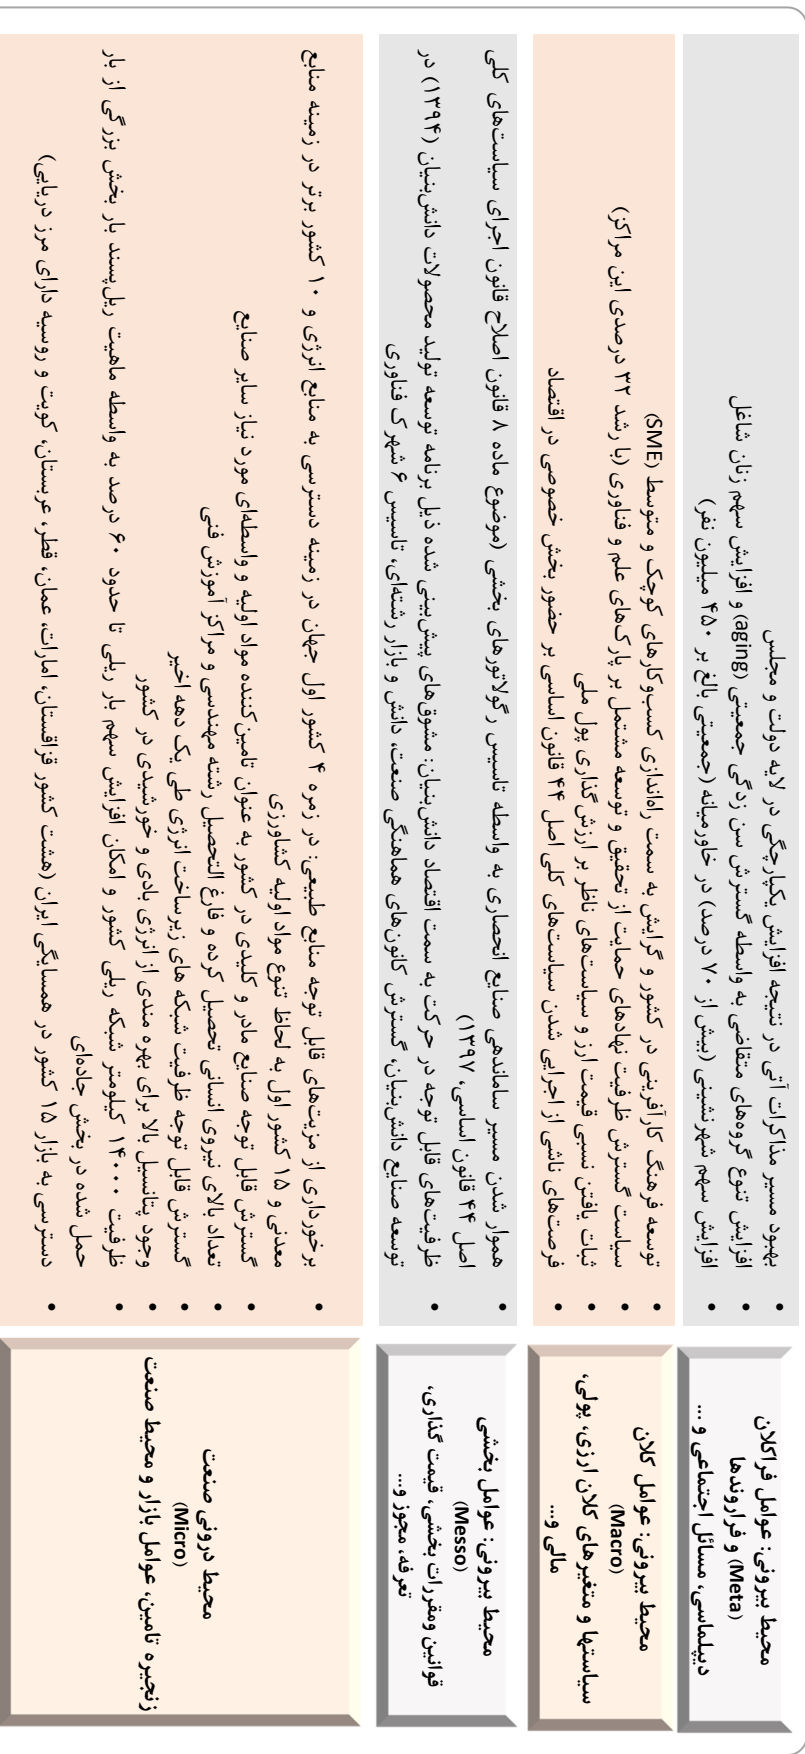 محیط بیرونی: عوامل فراکلان
(Meta) و فراروندها
دیپلماسی، مسائل اجتماعی و ...
بهبود مسیر مذاکرات آتی در نتیجه افزایش یکپارچگی در لایه دولت و مجلس
افزایش تنوع گروه‌های متقاضی به واسطه گسترش سن زدگی جمعیتی (aging) و افزایش سهم زنان شاغل
افزایش سهم شهرنشینی (بیش از ۷۰ درصد) در خاورمیانه (جمعیتی بالغ بر ۴۵۰ میلیون نفر)
محیط بیرونی: عوامل کلان
(Macro)
سیاستها و متغیرهای کلان ارزی، پولی،
مالی و...
توسعه فرهنگ کارآفرینی در کشور و گرایش به سمت راه‌اندازی کسب‌وکارهای کوچک و متوسط (SME)
سیاست گسترش ظرفیت نهادهای حمایت از تحقیق و توسعه مشتمل بر پارک‌های علم و فناوری (با رشد ۳۲ درصدی این مراکز)
ثبات یافتن نسبی قیمت ارز و سیاست‌های ناظر بر ارزش گذاری پول ملی
فرصت‌های ناشی از اجرایی شدن سیاست‌های کلی اصل ۴۴ قانون اساسی بر حضور بخش خصوصی در اقتصاد
محیط بیرونی: عوامل بخشی
(Messo)
قوانین ومقررات بخشی، قیمت گذاری،
تعرفه، مجوز و...
هموار شدن مسیر ساماندهی صنایع انحصاری به واسطه تاسیس رگولاتورهای بخشی (موضوع ماده ۸ قانون اصلاح قانون اجرای سیاست‌های کلی
اصل ۴۴ قانون اساسی، ۱۳۹۷)
ظرفیت‌های قابل توجه در حرکت به سمت اقتصاد دانش‌بنیان: مشوق‌های پیش‌بینی شده ذیل برنامه توسعه تولید محصولات دانش‌بنیان (۱۳۹۴) در
توسعه صنایع دانش‌بنیان، گسترش کانون‌های هماهنگی صنعت، دانش و بازار رشته‌ای، تاسیس ۶ شهرک فناوری
محیط درونی صنعت
(Micro)
زنجیره تامین، عوامل بازار و محیط صنعت
برخورداری از مزیت‌های قابل توجه منابع طبیعی: در زمره ۴ کشور اول جهان در زمینه دسترسی به منابع انرژی و ۱۰ کشور برتر در زمینه منابع
معدنی و ۱۵ کشور اول به لحاظ تنوع مواد اولیه کشاورزی
گسترش قابل توجه صنایع مادر و کلیدی در کشور به عنوان تامین‌کننده مواد اولیه و واسطه‌ای مورد نیاز سایر صنایع
تعداد بالای نیروی انسانی تحصیل کرده و فارغ التحصیل رشته مهندسی و مراکز آموزش فنی
گسترش قابل توجه ظرفیت شبکه های زیرساخت انرژی طی یک دهه اخیر
وجود پتانسیل بالا برای بهره مندی از انرژی بادی و خورشیدی در کشور
ظرفیت ۱۴۰۰۰ کیلومتر شبکه ریلی کشور و امکان افزایش سهم بار ریلی تا حدود ۶۰ درصد به واسطه ماهیت ریل‌پسند بار بخش بزرگی از بار
حمل شده در بخش جاده‌ای
دسترسی به بازار ۱۵ کشور در همسایگی ایران (هشت کشور قزاقستان، امارات، عمان، قطر، عربستان، کویت و روسیه دارای مرز دریایی)